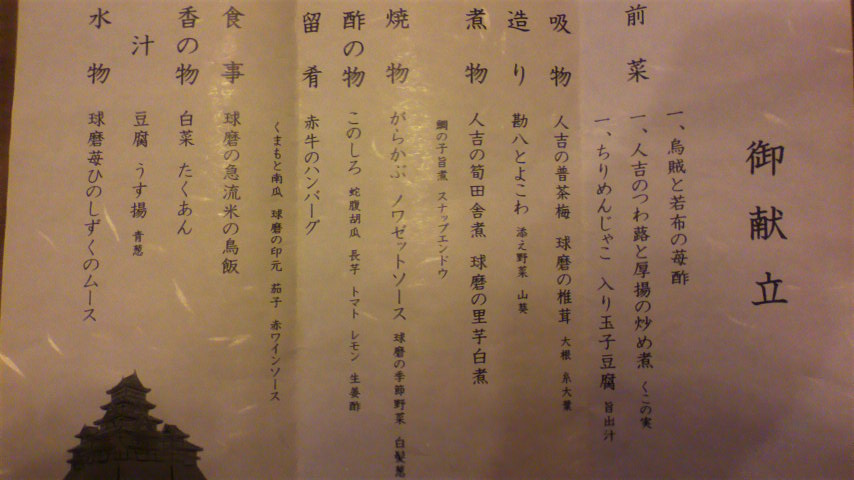 御献立
前菜
一、烏賊と若布の苺酢
一、人吉のつわ蕗と厚揚の炒め煮 くこの実
一、ちりめんじゃこ 入り玉子豆腐 旨出汁
吸物 人吉の普茶梅 球磨の椎茸 大根 糸大葉
造り 勘八とよこわ 添え野菜 山葵
煮物 人吉の筍田舎煮 球磨の里芋白煮
鯛の子旨煮 スナップエンドウ
焼物 がらかぶ ノワゼットソース 球磨の季節野菜 白髪葱
酢の物 このしろ 蛇腹胡瓜 長芋 トマト レモン 生姜酢
留肴 赤牛のハンバーグ
くまもと南瓜 球磨の印元 茄子 赤ワインソース
食事 球磨の急流米の鳥飯
香の物 白菜 たくあん
汁 豆腐 うす揚 青葱
水物 球磨苺ひのしずくのムース